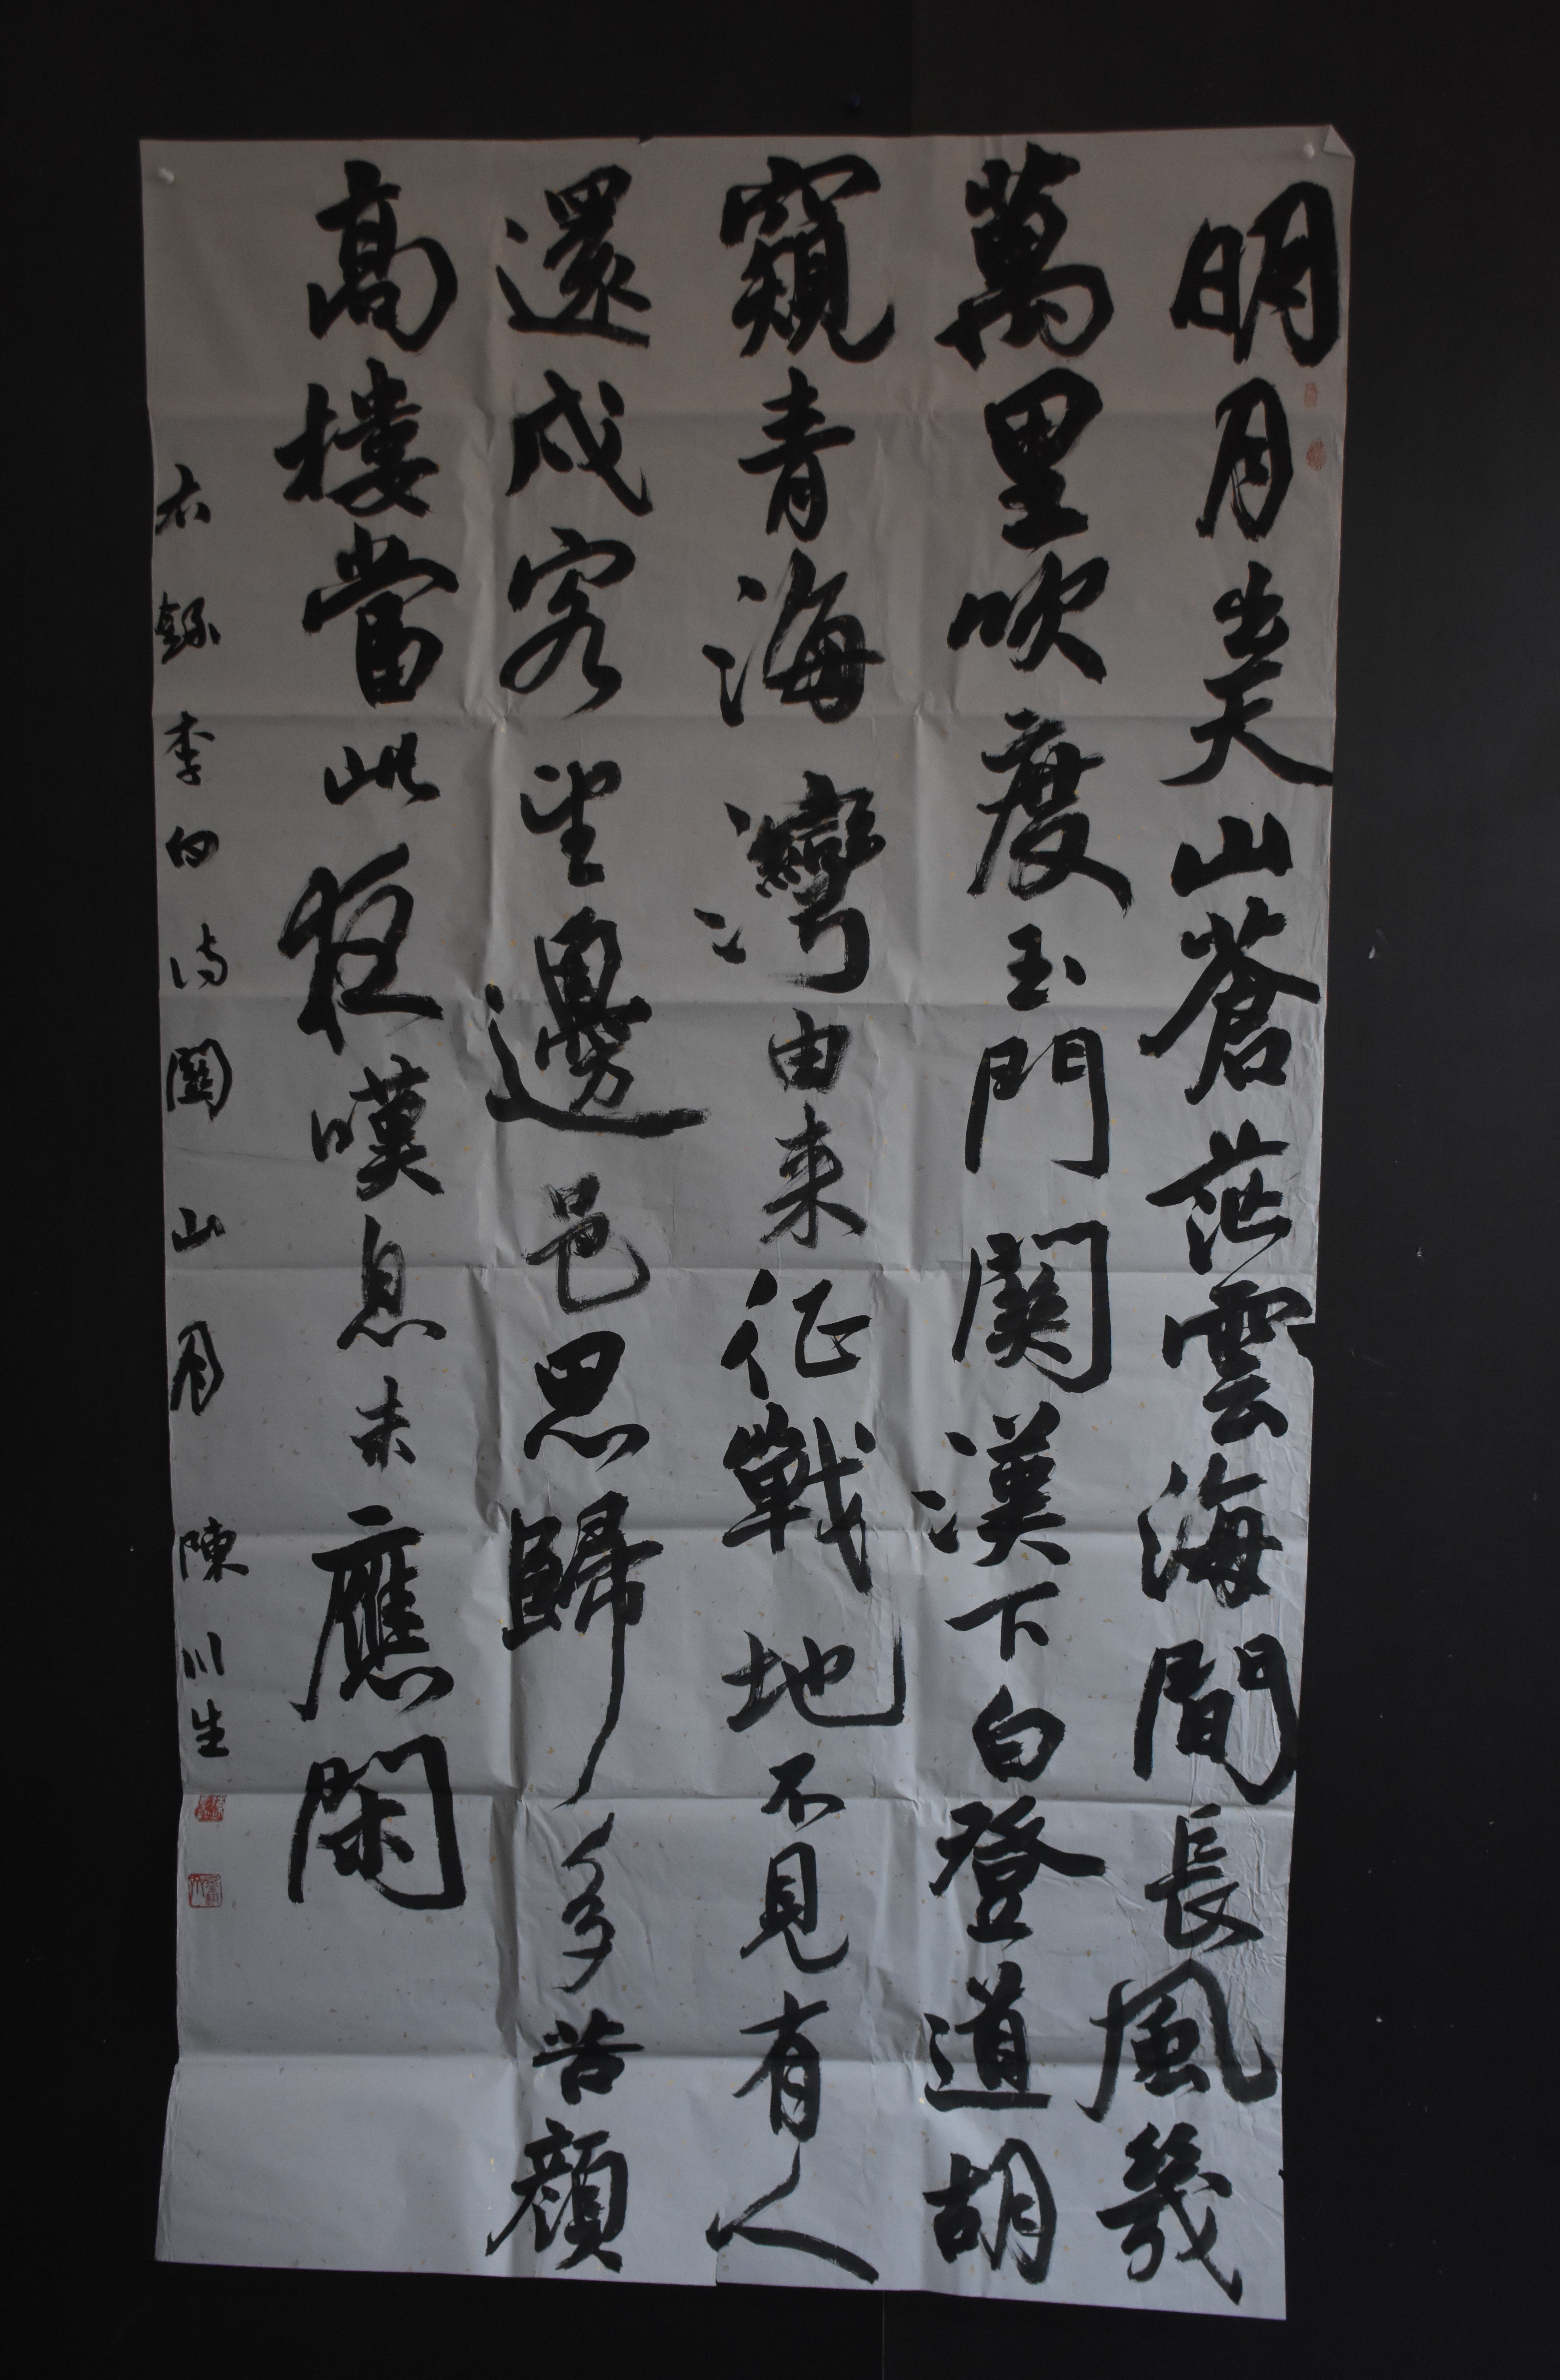 明月出天山蒼茫雲海間長風幾
萬里吹度玉門関漢下白登道胡
窺青海灣由来征戰地不見有人
還戍客望邊邑思歸多苦顔
高樓當此夜嘆息未應閑
右録李白詩關山月 陳川生